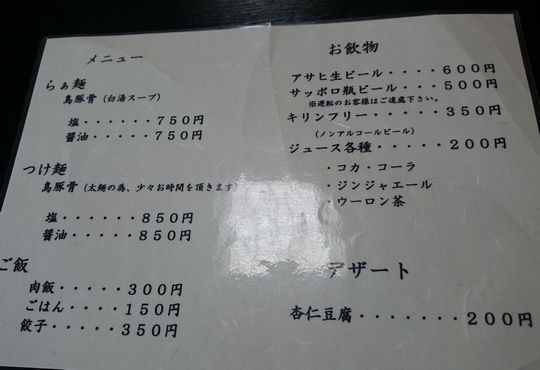 メニュー
らぁ麺
鳥豚骨(白湯スープ)
塩・・・・・・750円
醤油・・・・・750円
つけ麺
鳥豚骨(太麺の為、少々お時間を頂きます)
塩・・・・・・850円
醤油・・・・・850円
ご飯
肉飯・・・・・300円
ごはん・・・・150円
餃子・・・・・350円
お飲物
アサヒ生ビール・・・・600円
サッポロ瓶ビール・・・500円
※運転のお客様はご遠慮下さい。
キリンフリー・・・・・350円
(ノンアルコールビール)
ジュース各種・・・・・200円
・コカ・コーラ
・ジンジャエール
・ウーロン茶
デザート
杏仁豆腐・・・・・・・200円